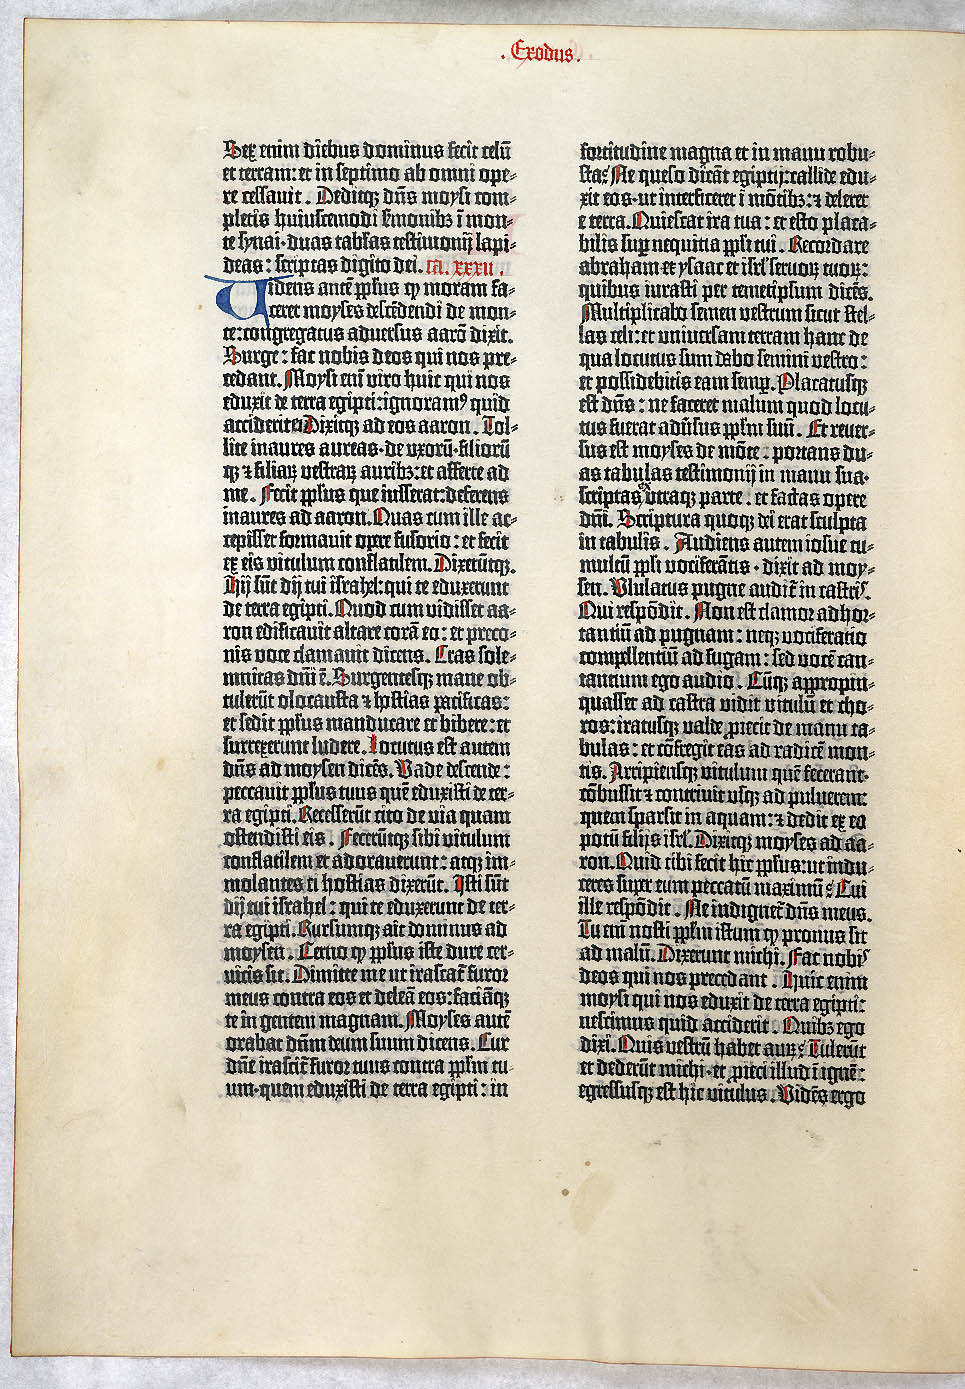 . Exodus .
Sex enim diebus dominus fecit celū
et terram: et in septimo ab omni ope-
re cessavit . Deditq; dn̄s moysi com-
pletis huiuscemodi s̄monibꝫ ī mon-
te synai· duas tabl̄as testimonij lapi-
deas : scriptas digito dei. ca. xxxii .
Videns autē ppl̄us ꝙ moram fa-
ceret moyses descēdendi de mon-
te: congregatus adversus aarō dixit.
Surge : fac nobis deos qui nos pre-
cedant. Moysi eni̅ viro huic qui nos
eduxit de terra egipti: ignoramꝰ quid
acciderit. Dixitq; ad eos aaron . Tol-
lite inaures aureas· de uxorū· filiorū
qꝫ ⁊ filiaꝝ vestraꝝ auribꝫ: et afferte ad
me . Fecit ppl̄us que iusserat: deferens
inaures ad aaron. Quas cum ille ac-
cepisset formavit opere fusorio : et fecit
ex eis vitulum conflatilem. Dixerūtqꝫ.
Hij sūt dij tui israhel: qui te eduxerunt
de terra egipti. Quod cum vidisset aa-
ron edificavit altare corā eo : et preco-
nis voce clamavit dicens. Cras sole-
mnitas dn̄i ē. Surgentesqꝫ mane ob-
tulerūt olocausta ⁊ hostias pacificas:
et sedit ppl̄us manducare et bibere : et
surrexerunt ludere. Locutus est autem
dn̄s ad moysen dicēs. Vade descende :
peccavit ppl̄us tuus quē eduxisti de ter-
ra egipti. Recesserūt cito de via quam
ostendisti eis . Fecerūtqꝫ sibi vitulum
conflatilem et adoraverunt : atqꝫ im-
molantes ei hostias dixerūt. Isti sūt
dij tui israhel : qui te eduxerunt de ter-
ra egipti. Rursumqꝫ ait dominus ad
moysen . Cerno ꝙ ppl̄us iste dure cer-
vicis sit. Dimitte me ut irascat̄ furor
meus contra eos et deleā eos: faciāqꝫ
te in gentem magnam. Moyses autē
orabat dn̄m deum suum dicens. Cur
dn̄e irascit̄ furor tuus contra ppl̄m tu-
um· quem eduxisti de terra egipti : in
fortitudine magna et in manu robu-
sta? Ne queso dicāt egiptij: callide edu-
xit eos· ut interficeret ī mōtibꝫ: ⁊ deleret
e terra. Quiescat ira tua : et esto placa-
bilis suꝑ nequitia ppl̄i tui . Recordare
abraham· et ysaac et isrl̄ servoꝝ tuoꝝ:
quibus iurasti per temetipsum dicēs.
Multiplicabo semen vestrum sicut stel-
las celi : et universam terram hanc de
qua locutus sum dabo semini vestro :
et possidebitis eam semꝑ. Placatusqꝫ
est dn̄s : ne faceret malum quod locu-
tus fuerat adv̄sus ppl̄m suū. Et rever-
sus est moyses de mōte . portans du-
as tabulas testimonij in manu sua·
scriptas utraqꝫ parte . et factas opere
dn̄i. Scriptura quoqꝫ dei erat sculpta
in tabulis . Audiens autem iosue tu-
multū ppl̄i vociferātis · dixit ad moy-
sen. Ululatus pugne audit̄ in castris.
Qui respōdit . Non est clamor adhor-
tantiū ad pugnam : neqꝫ vociferatio
compellentiū ad fugam : sed vocē can-
tantium ego audio . Cūqꝫ appropin-
quasset ad castra vidit vitulū et cho-
ros: iratusqꝫ valde ꝓiecit de manu ta-
bulas : et cōfregit eas ad radicē mon-
tis. Arripiensqꝫ vitulum quē fecerant·
cōbussit ⁊ contrivit usqꝫ ad pulverem:
quem sparsit in aquam: ⁊ dedit ex eo
potū filijs isrl̄. Dixitqꝫ moyses ad aa-
ron. Quid tibi fecit hic ppl̄us: ut indu-
ceres super eum peccatū maximū? Cui
ille respōdit . Ne indignet̄ dn̄s meus.
Tu eni̅ nosti ppl̄m istum ꝙ pronus sit
ad malū. Dixerunt michi. Fac nobis
deos qui nos precedant . Huic enim
moysi qui nos eduxit de terra egipti:
nescimus quid acciderit . Quibꝫ ego
dixi. Quis vestrū habet auꝝ? Tulerūt
et dederūt michi· et ꝓieci illud ī ignē:
egressusqꝫ est hic vitulus . Vidēs ergo